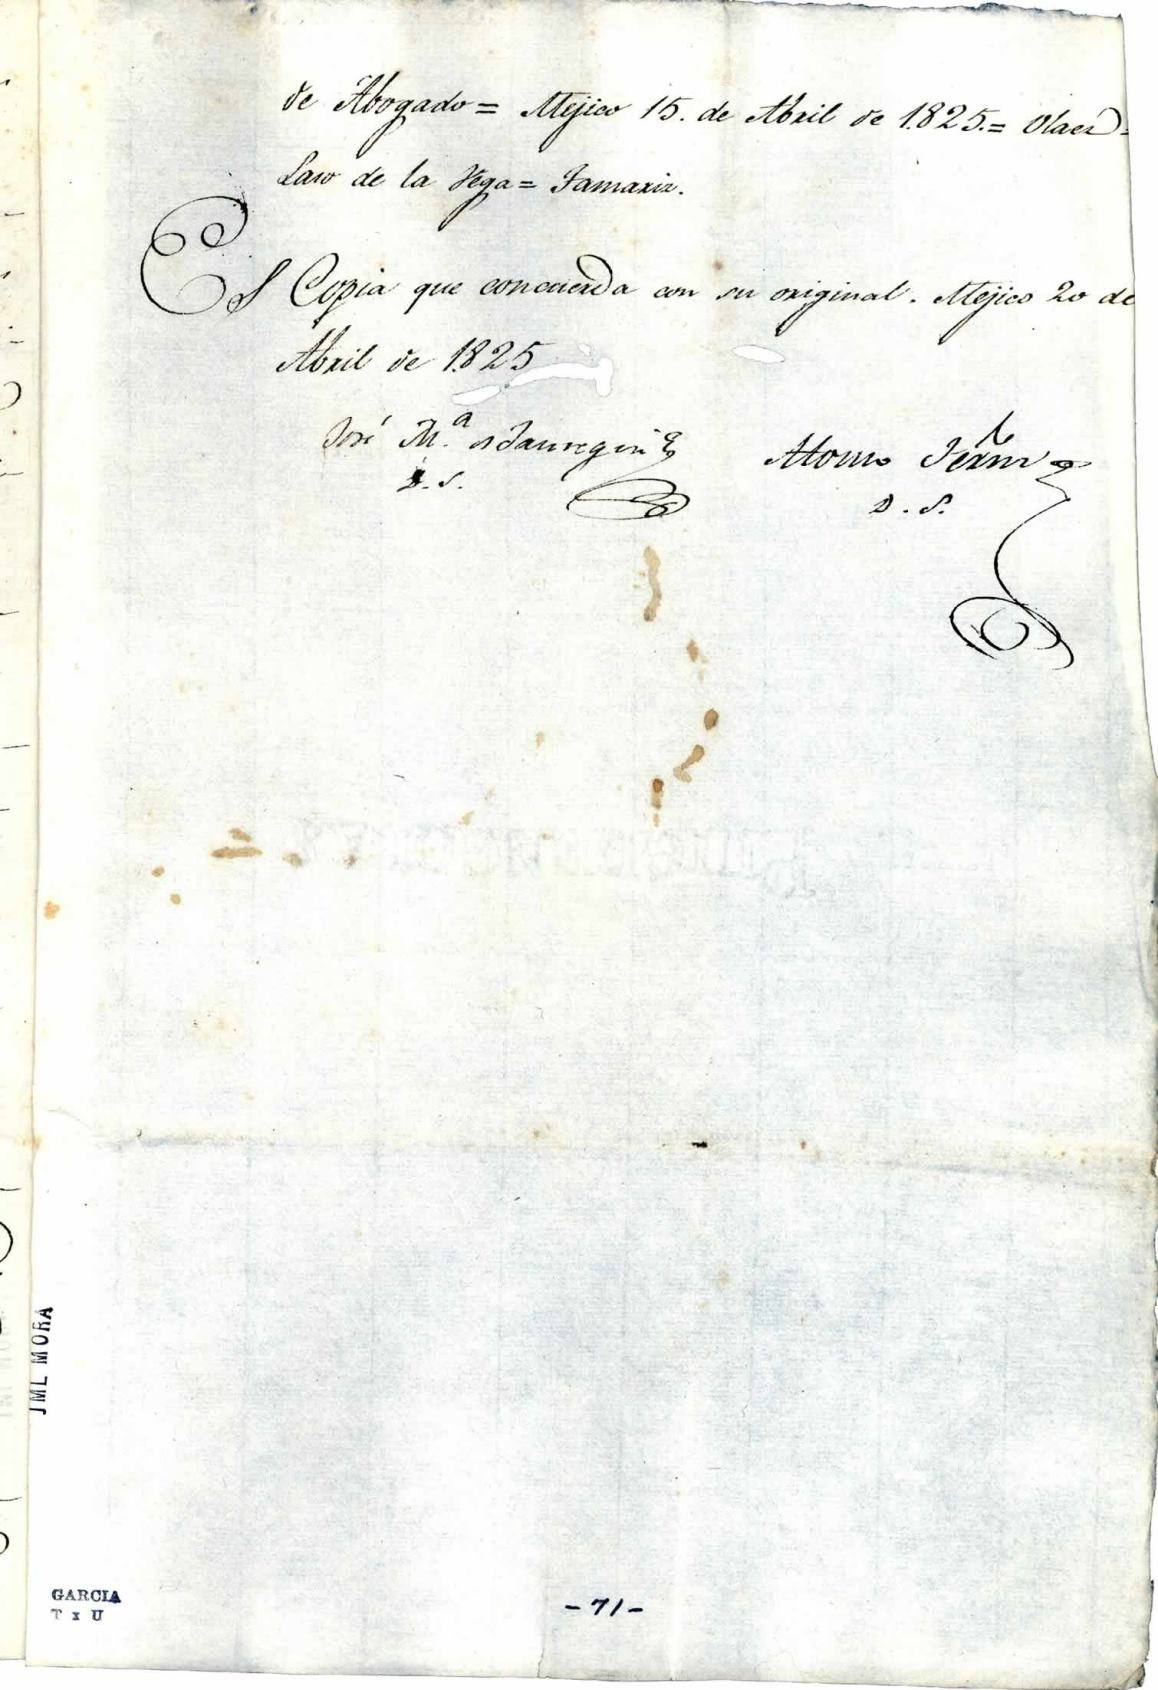 de Abogado = Mejico 15. de Abril de 1.825. = Olaez =
Laso de la Vega = Tamariz.
Es Copia que concuerda con su original. Mejico 20 de
Abril de 1.825
José M.ª de Jauregui
D. S.
Alonso Fern
D. S.
JML MORA
GARCIA
T x U
-71-